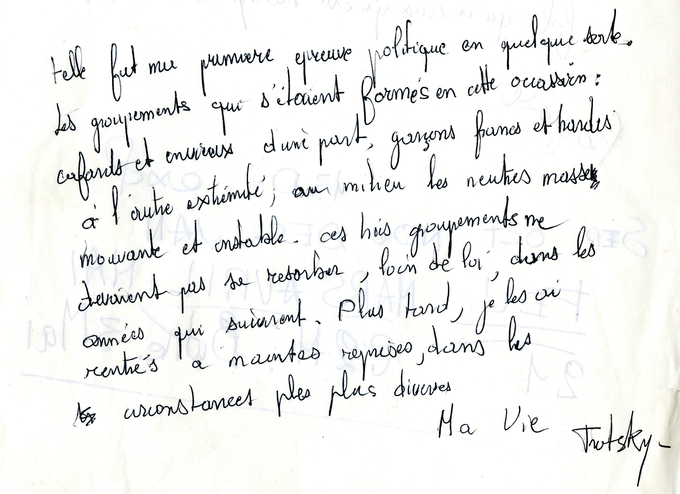 telle fut me premiere epreuve politique en quelque sorte.
Les groupements qui s'étaient formés en cette occassion :
cafards et envieux d'une part, garçons francs et hardis
à l'autre extrémité, au milieu les neutres masse
mouvante et instable. ces trois groupements ne
devaient pas se resorber, loin de loi, dans les
années qui suivirent. Plus tard, je les ai
rentrés a maintes reprises, dans les
circonstances ples plus diverses
Ma Vie Trotsky-